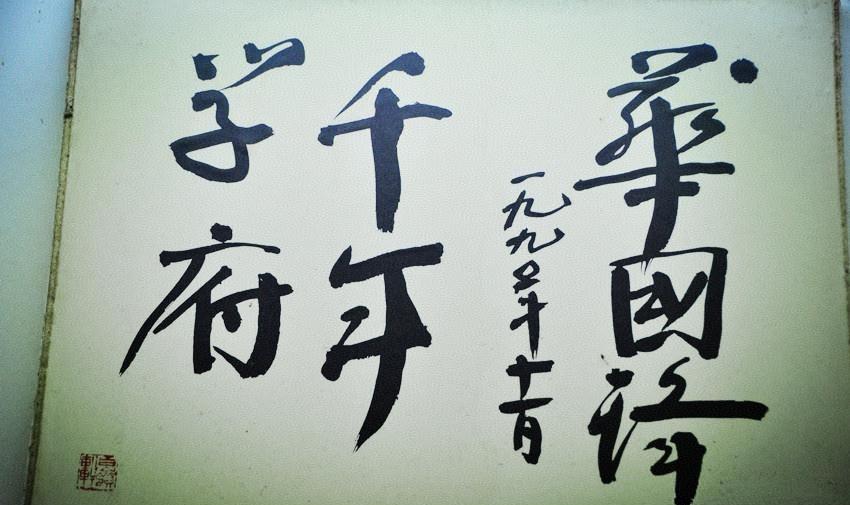 華國锋
一九九五年十一月
千年
学府